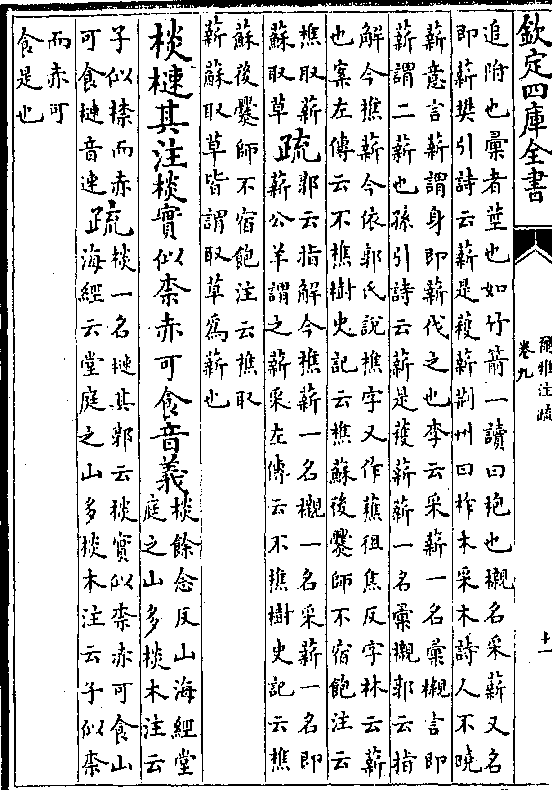 欽定四庫全書
爾雅注疏
卷九
十一
追附也彙者莖也如竹箭一讀曰枹也櫬名采薪又名
即薪樊引詩云薪是穫薪荆州曰柞木采木詩人不曉
薪意言薪謂身即薪伐之也李云采薪一名彙櫬言即
薪謂二薪也孫引詩云薪是穫薪薪一名彙櫬郭云指
解今樵薪今依郭氏說樵字又作蕉徂焦反字林云薪
也案左傳云不樵樹史記云樵蘇後爨師不宿飽注云
樵取薪
蘇取草
疏
郭云指解今樵薪一名櫬一名采薪一名即
薪公羊謂之薪采左傳云不樵樹史記云樵
蘇後爨師不宿飽注云樵取
薪蘇取草皆謂取草為薪也
棪樾其注棪實似柰赤可食音義
棪餘念反山海經堂
庭之山多棪木注云
子似㮈而赤
可食樾音速
疏
棪一名樾其郭云棪實似柰赤可食山
海經云堂庭之山多棪木注云子似柰
而赤可
食是也